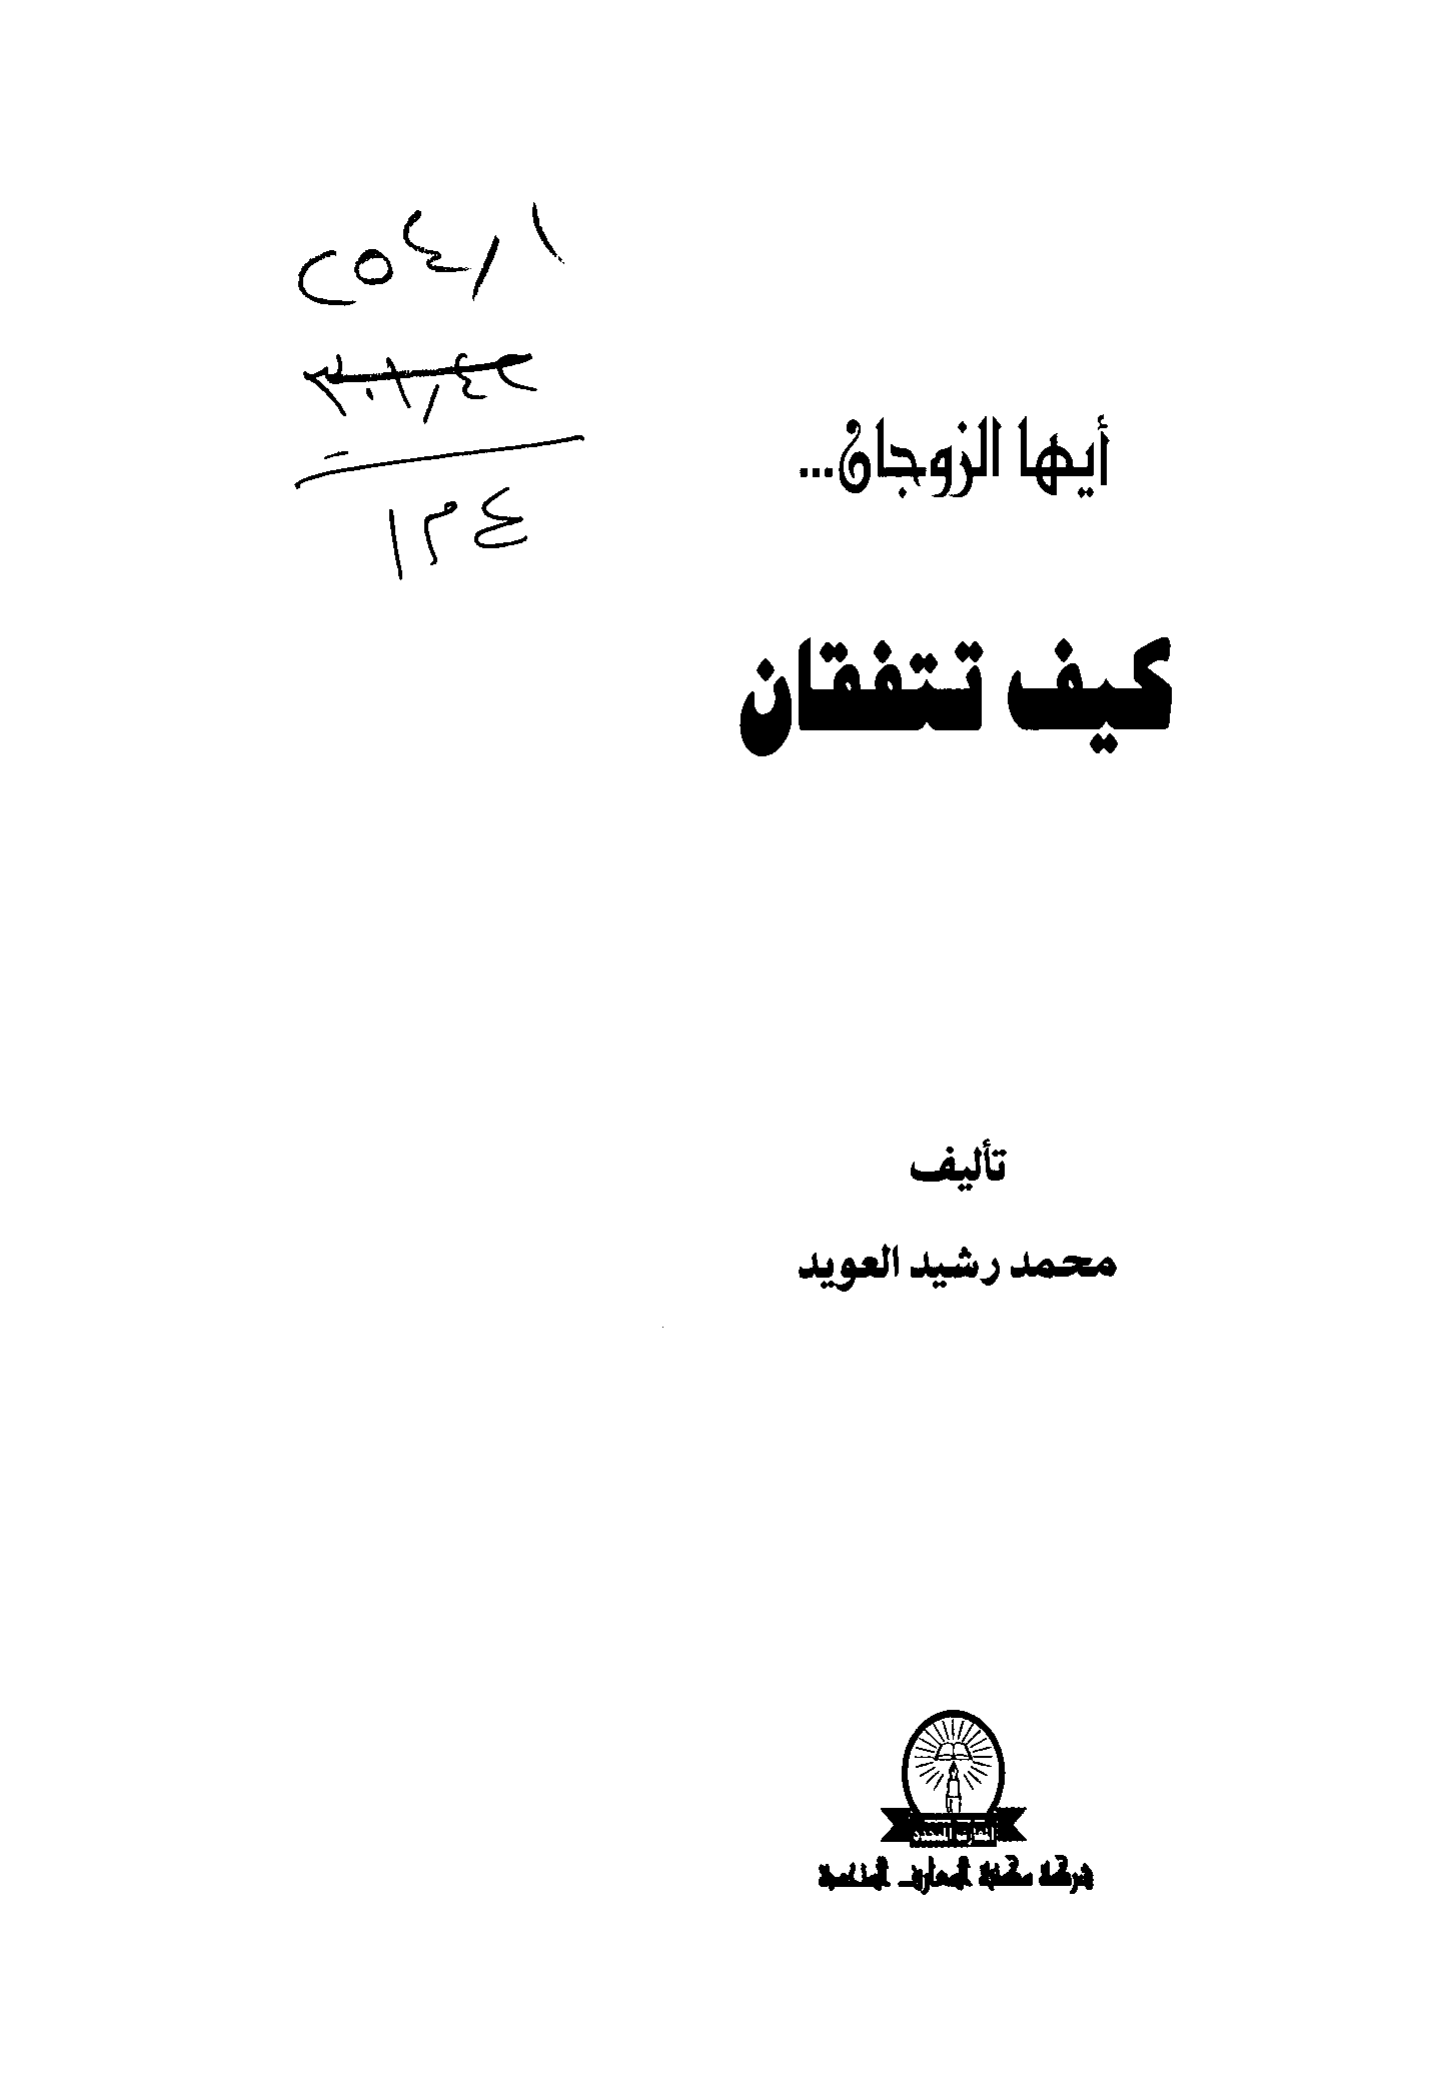 ٢٥٤,١
٣٠١,٤٢
١٣٤
أيها الزوجان...
كيف تتفقان
تأليف
محمد رشيد العويد
المعارف المتحدة
شركة مكتبة المعارف المتحدة